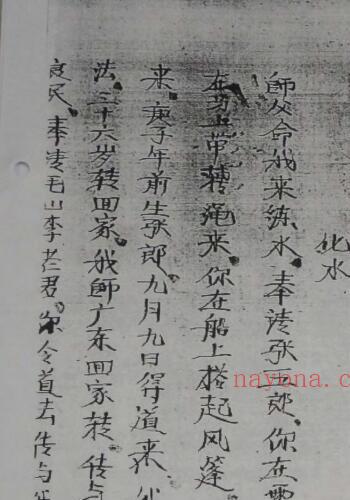 化水
師父命我来练水。奉请张五郎。你在
在芳上带转绳来。你在船上搭起风篷
来。庚子年前生张郎。九月九日得道来。
法。三十六岁转回家。我師广东回家转。传与
良民。奉请毛山李老君。令道去传与
nayona.c